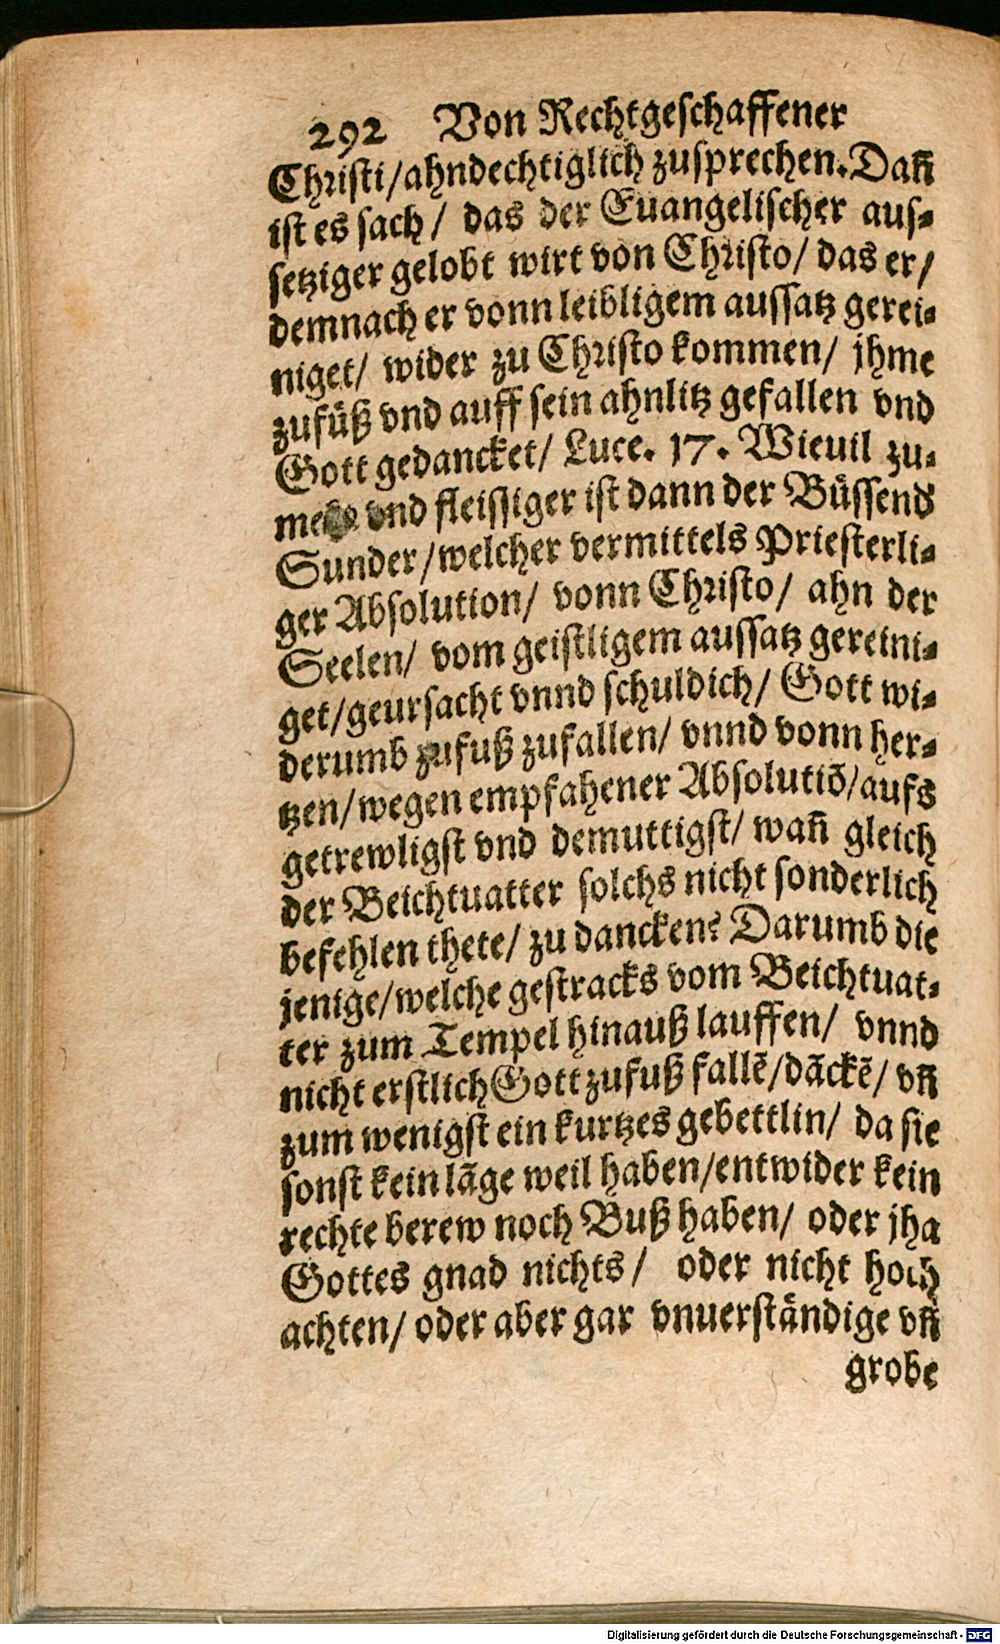 292 Von Rechtgeschaffener
Christi/ahndechtiglich zusprechen. Dañ
ist es sach/ das der Euangelischer aus-
setziger gelobt wirt von Christo/ das er/
demnach er vonn leibligem aussatz gerei-
niget/ wider zu Christo kommen/ jhme
zufüß vnd auff sein ahnlitz gefallen vnd
Gott gedancket/ Luce. 17. Wieuil zu-
vnd fleissiger ist dann der Büssend
Sunder/welcher vermittels Priesterli-
ger Absolution/ vonn Christo/ ahn der
Seelen/ vom geistligem aussatz gereini-
get/geursacht vnnd schuldich/ Gott wi-
derumb zufuß zufallen/ vnnd vonn her-
tzen/wegen empfahener Absolutiõ/aufs
getrewligst vnd demuttigst/ wañ gleich
der Beichtuatter solchs nicht sonderlich
befehlen thete/ zu dancken? Darumb die
jenige/welche gestracks vom Beichtuat-
ter zum Tempel hinauß lauffen/ vnnd
nicht erstlich Gott zufuß fallẽ/dãckẽ/ vñ
zum wenigst ein kurtzes gebettlin/ da sie
sonst kein lãge weil haben/entwider kein
rechte berew noch Buß haben/ oder jha
Gottes gnad nichts/ oder nicht hoch
achten/ oder aber gar vnuerständige vñ
grobe
Digitalisierung gefördert durch die Deutsche Forschungsgemeinschaft - DFG